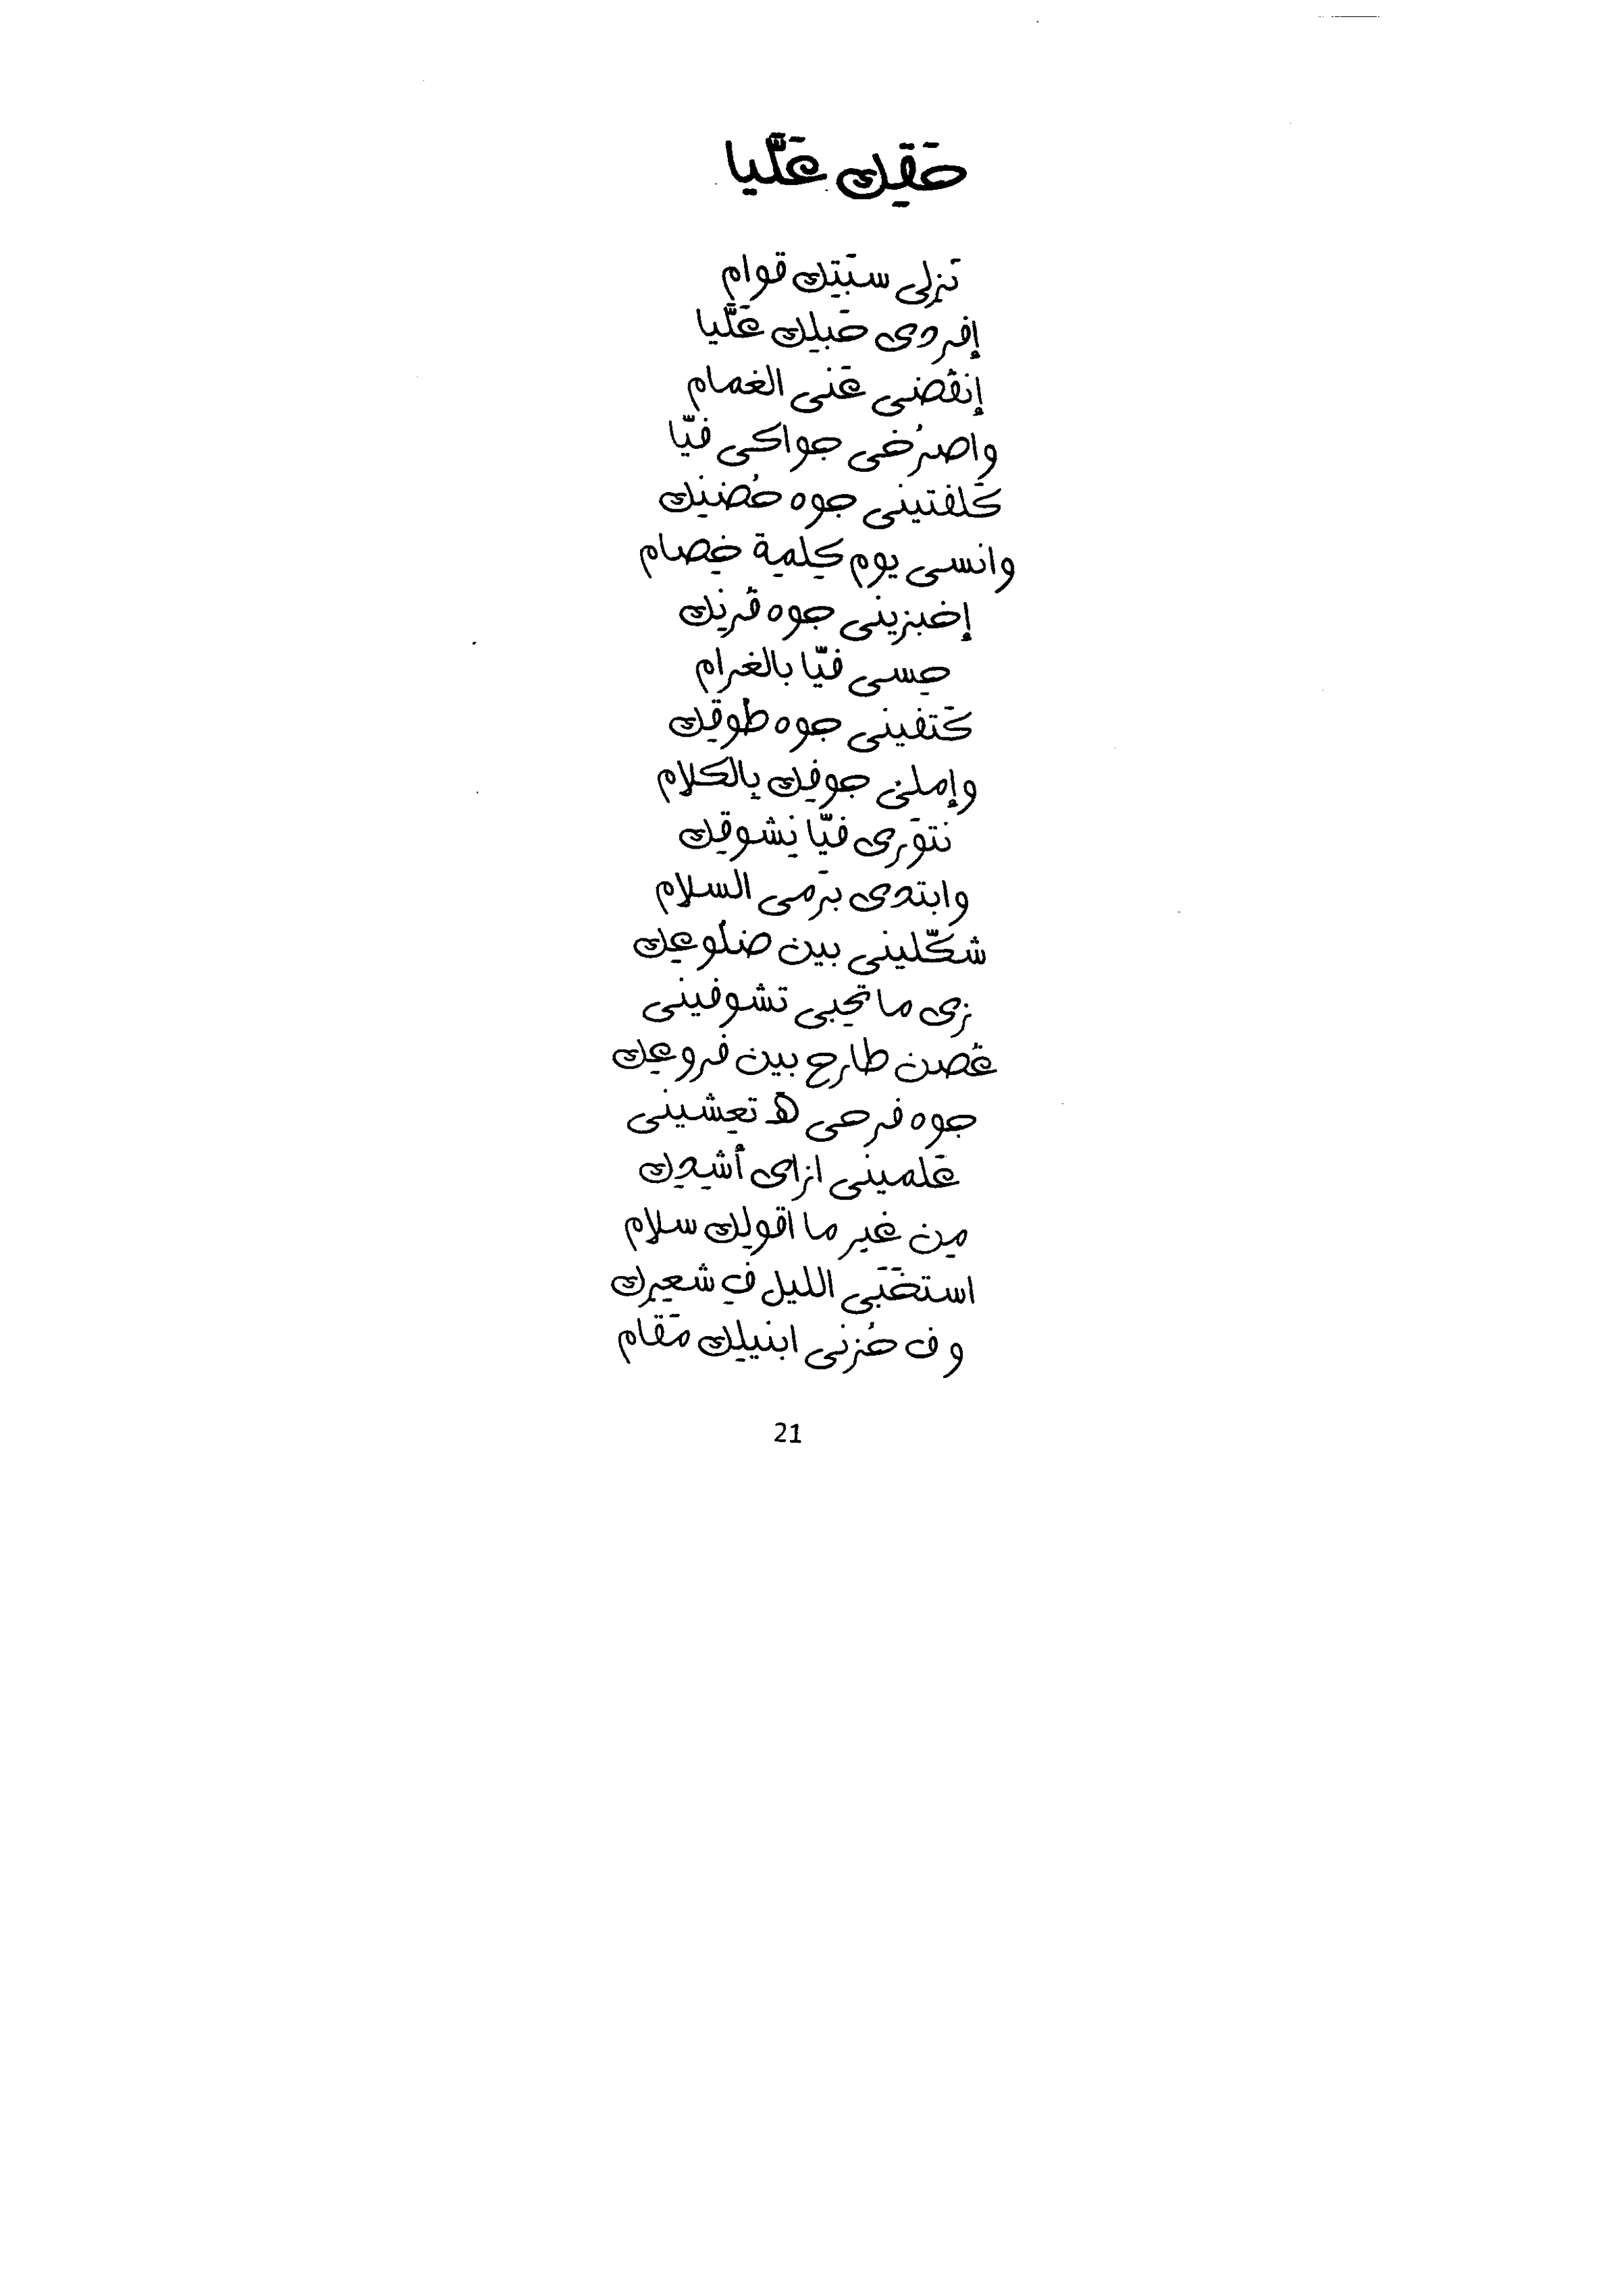 حَقِك عَلَّيا
نَزلى سَبَتِك قوام
إفردى حَبلِك عَلَّيا
إنفُضى عَنى الغمام
واصرُخى جواكى فيَّا
كَلفتينى جوه حُضنِك
وانسى يوم كِلمِة خِصام
إخبزينى جوه فُرنِك
حِسى فيَّا بالغرام
كَتفينى جوه طوقِك
وإملى جوفِك بِالكلام
نتوَرى فيَّا بِشوقِك
وابتدى برَمى السلام
شكّلينى بين ضلوعِك
زى ما تحِبى تشوفينى
غُصن طارح بين فروعِك
جوه فرحى هَـ تعِشينى
عَلمينى ازاى أشيدِك
مِن غير ما اقولِك سلام
استخَبَى الليل فِ شعرِك
و ف حُزنى ابنيلِك مَقام
21